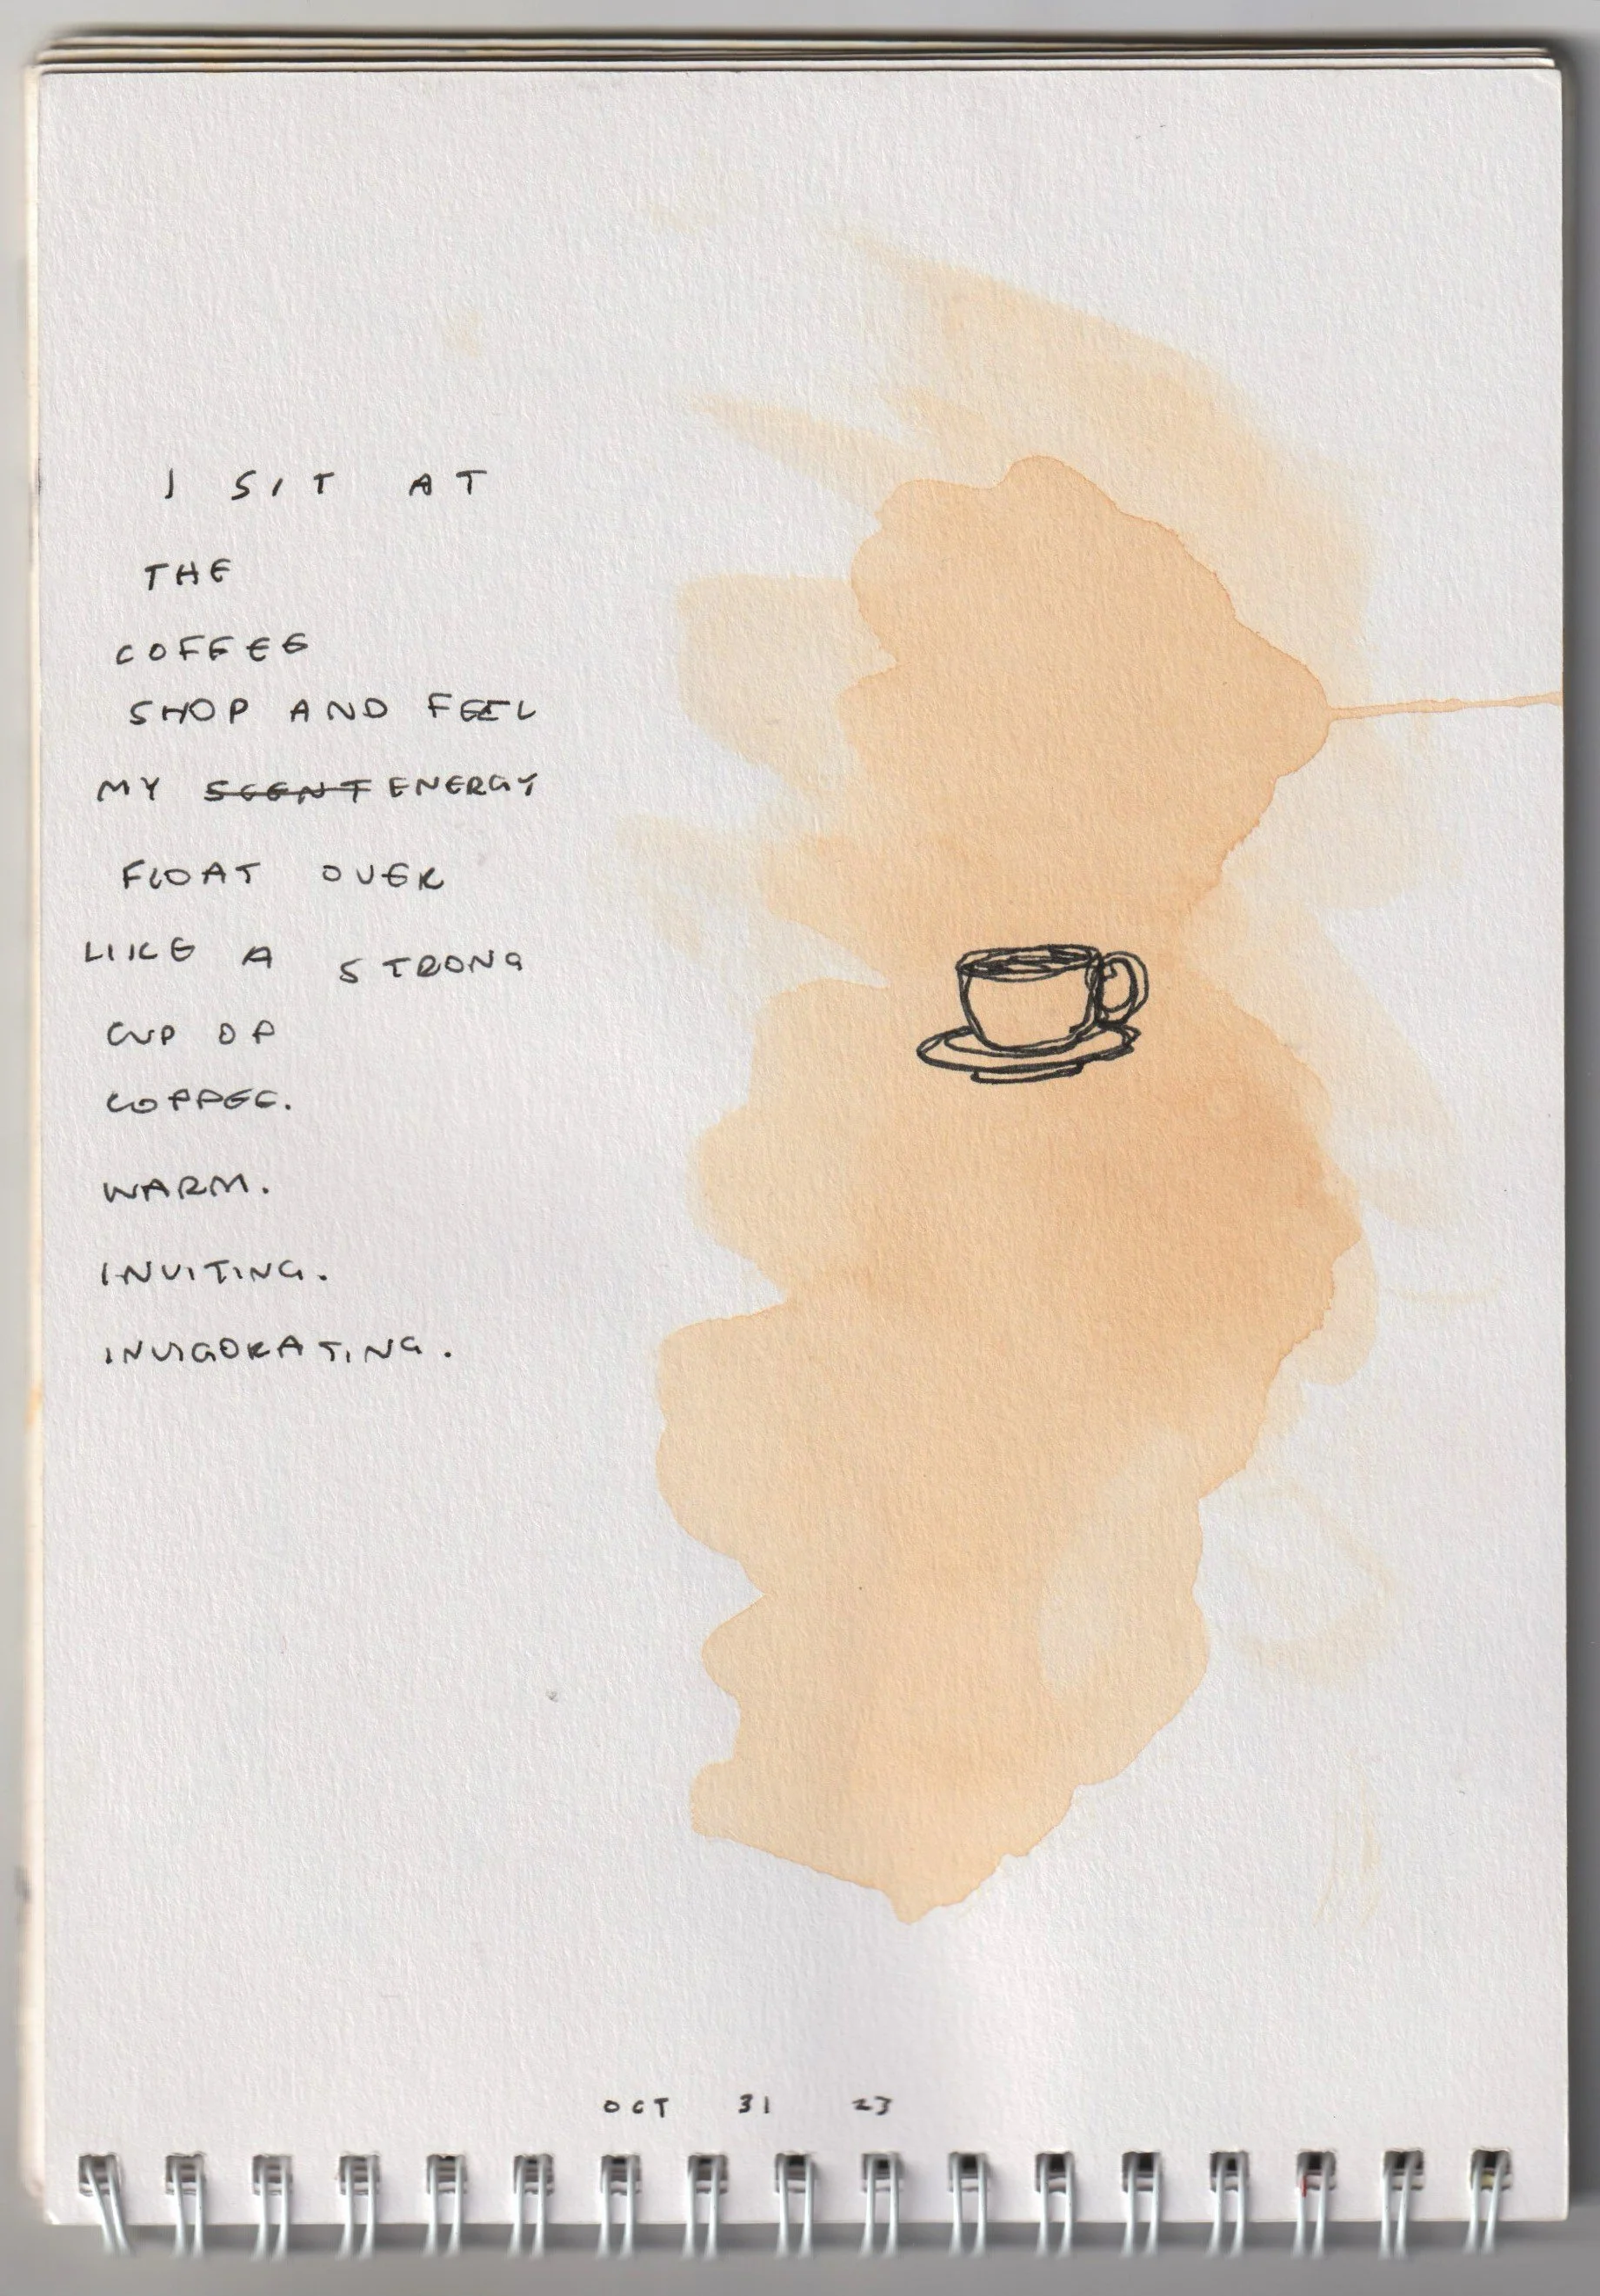 I SIT AT
THE
COFFEE
SHOP AND FEEL
MY SCENT ENERGY
FLOAT OVER
LIKE A STRONG
CUP OF
COFFEE.
WARM.
INVITING.
INVIGORATING.
OCT 31 23